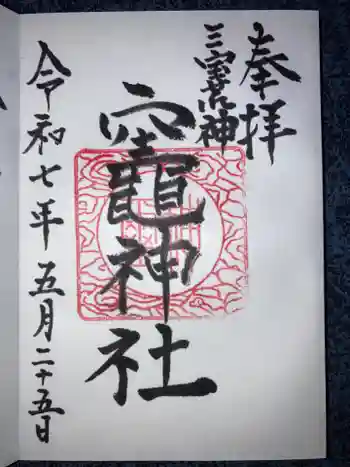 奉拝
三宝荒神
竈神社
令和七年五月二十五日